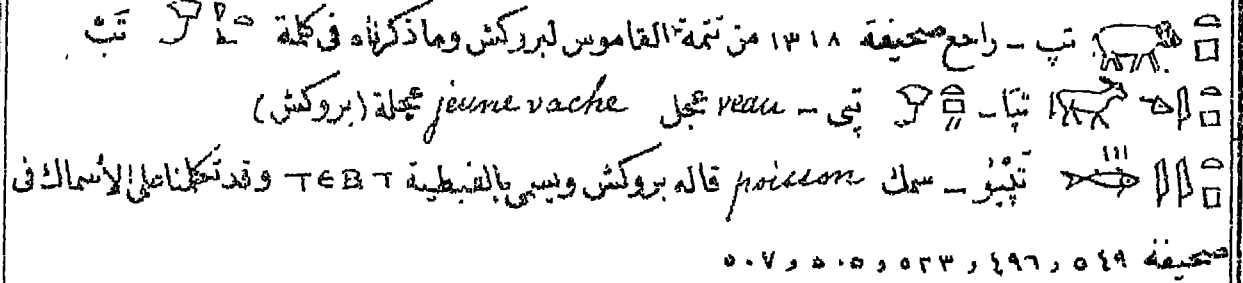 تپ - راجع صحيفة ١٣١٨ من تتمة القاموس لبروكش وما ذكرناه فى كلمة تَبْ
تپَا - تپى - veau عجل jeune vache عجلة (بروكش)
تپيُو - سمك poisson قاله بروكش ويسمى بالقبطية ТЄВТ وقد تكلمنا على الأسماك فى
صحيفة ٥٤٩ و ٤٩٦ و ٥٢٣ و ٥٠٥ و ٥٠٧